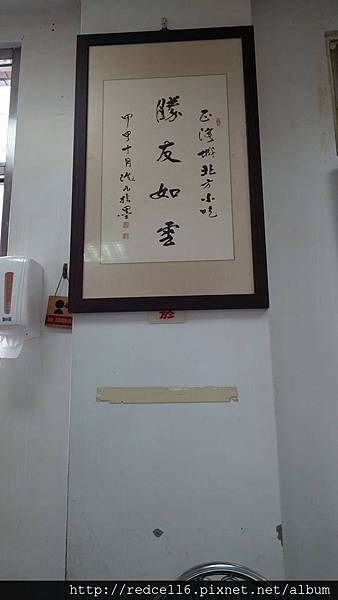 正灣
北方小吃
勝友如雲
甲申十月沈
墨
http://redcell16.pixnet.net/album